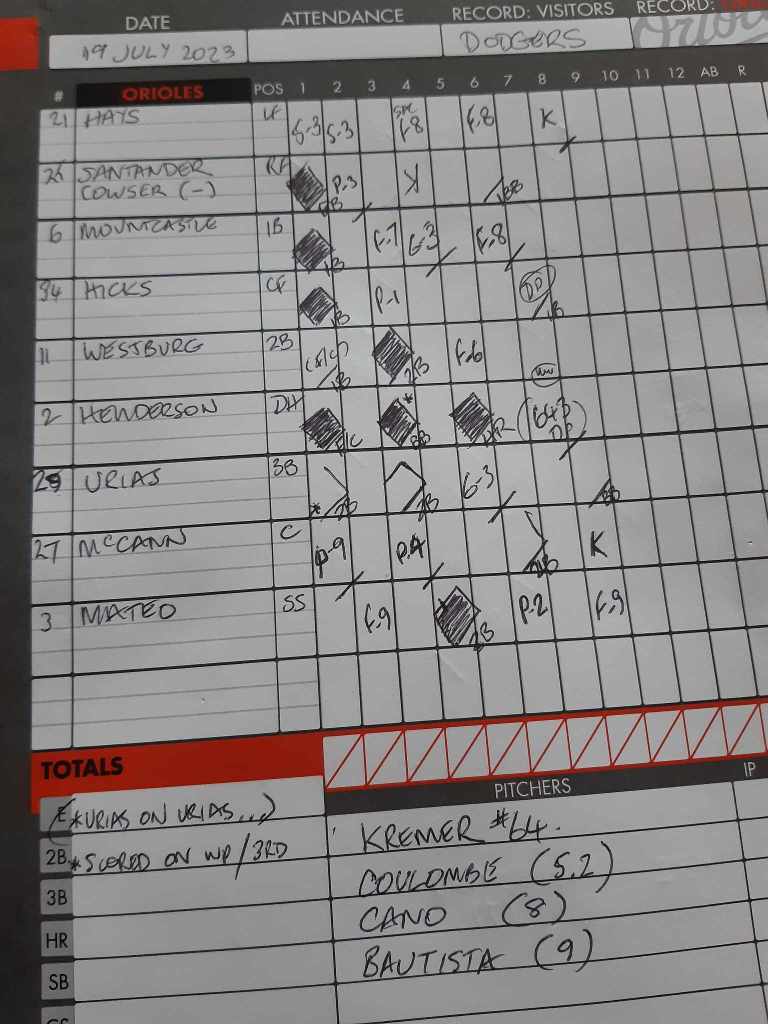 DATE ATTENDANCE RECORD: VISITORS RECORD:
19 JULY 2023 DODGERS
# ORIOLES POS 1 2 3 4 5 6 7 8 9 10 11 12 AB R
21 HAYS LF 5-3 5-3 F.8 F.8 K
25 SANTANDER RF P.3 K BB
COWSER (-)
6 MOUNTCASTLE 1B 1B F.7 6-3 F.8
34 HICKS CF 1B P-1 DP 1B
11 WESTBURG 2B 1B 2B F.6 WW
2 HENDERSON DH F/C * BB HR (643 DP)
29 URIAS 3B * 2B 1B 6-3 BB
27 McCANN C P-9 P.4 K
3 MATEO SS F.9 P.2 F.9
TOTALS
E (*URIAS ON URIAS...)
2B *SCORED ON WP/3RD
3B
HR
SB
PITCHERS IP
KREMER #64.
COULOMBE (5.2)
CANO (8)
BAUTISTA (9)